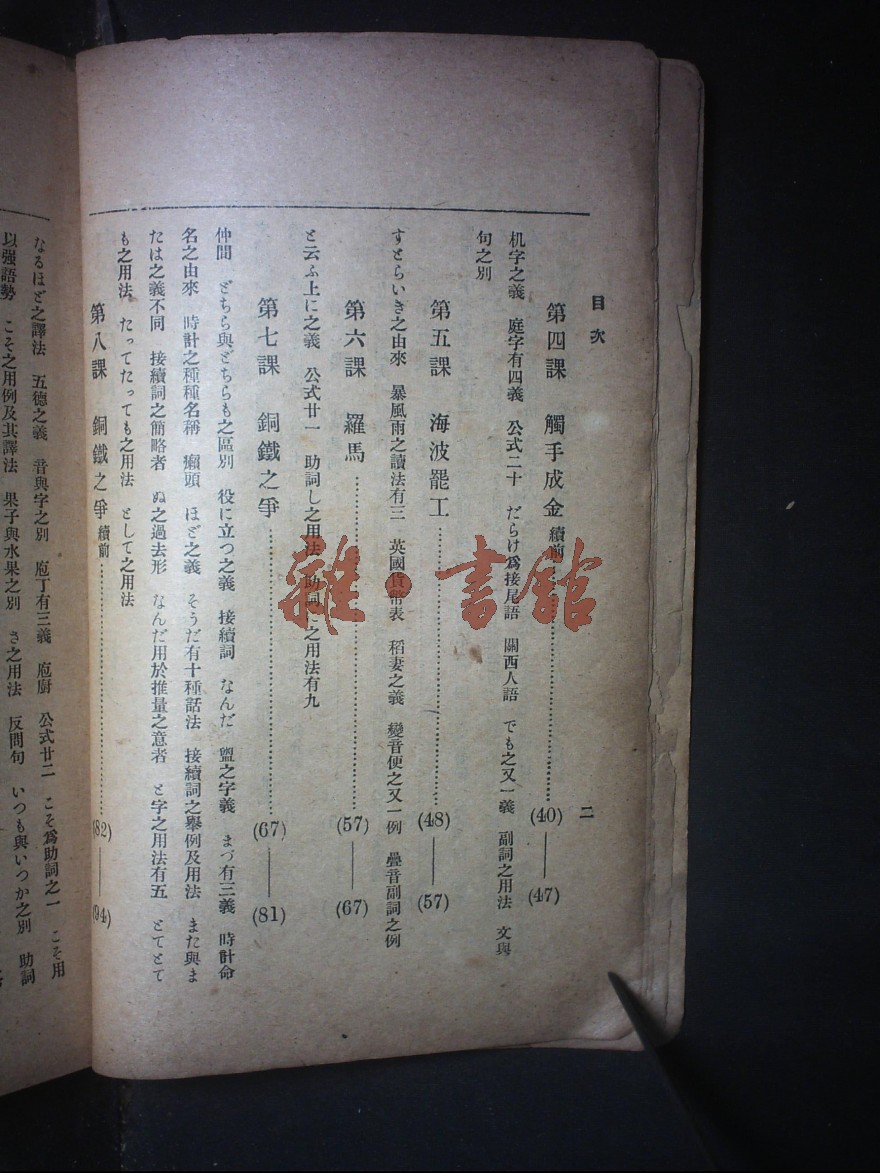 目次
二
第四課 觸手成金 續前 (40)——(47)
机字之義 庭字有四義 公式二十 だらけ爲接尾語 關西人語 でも之又一義 副詞之用法 文與
句之別
第五課 海波罷工 (48)——(57)
すとらいき之由來 暴風雨之讀法有三 英國貨幣表 稻妻之義 變音便之又一例 疊音副詞之例
第六課 羅馬 (57)——(67)
と云ふ上に之義 公式廿一 助詞し之用法 助詞に之用法有九
第七課 銅鐵之爭 (67)——(81)
仲間 どちら與どちらも之區別 役に立つ之義 接續詞 なんだ 盥之字義 まづ有三義 時計命
名之由來 時計之種種名稱 癩頭 ほど之義 そうだ有十種話法 接續詞之舉例及用法 また與ま
たは之義不同 接續詞之簡略者 ぬ之過去形 なんだ用於推量之意者 と字之用法有五 とてとて
も之用法 たってたっても之用法 として之用法
第八課 銅鐵之爭 續前 (82)——(94)
なるほど之譯法 五德之義 音與字之別 庖丁有三義 庖廚 公式廿二 こそ爲助詞之一 こそ用
以强語勢 こそ之用例及其譯法 果子與水果之別 さ之用法 反問句 いつも與いつか之別 助詞
雜·書館